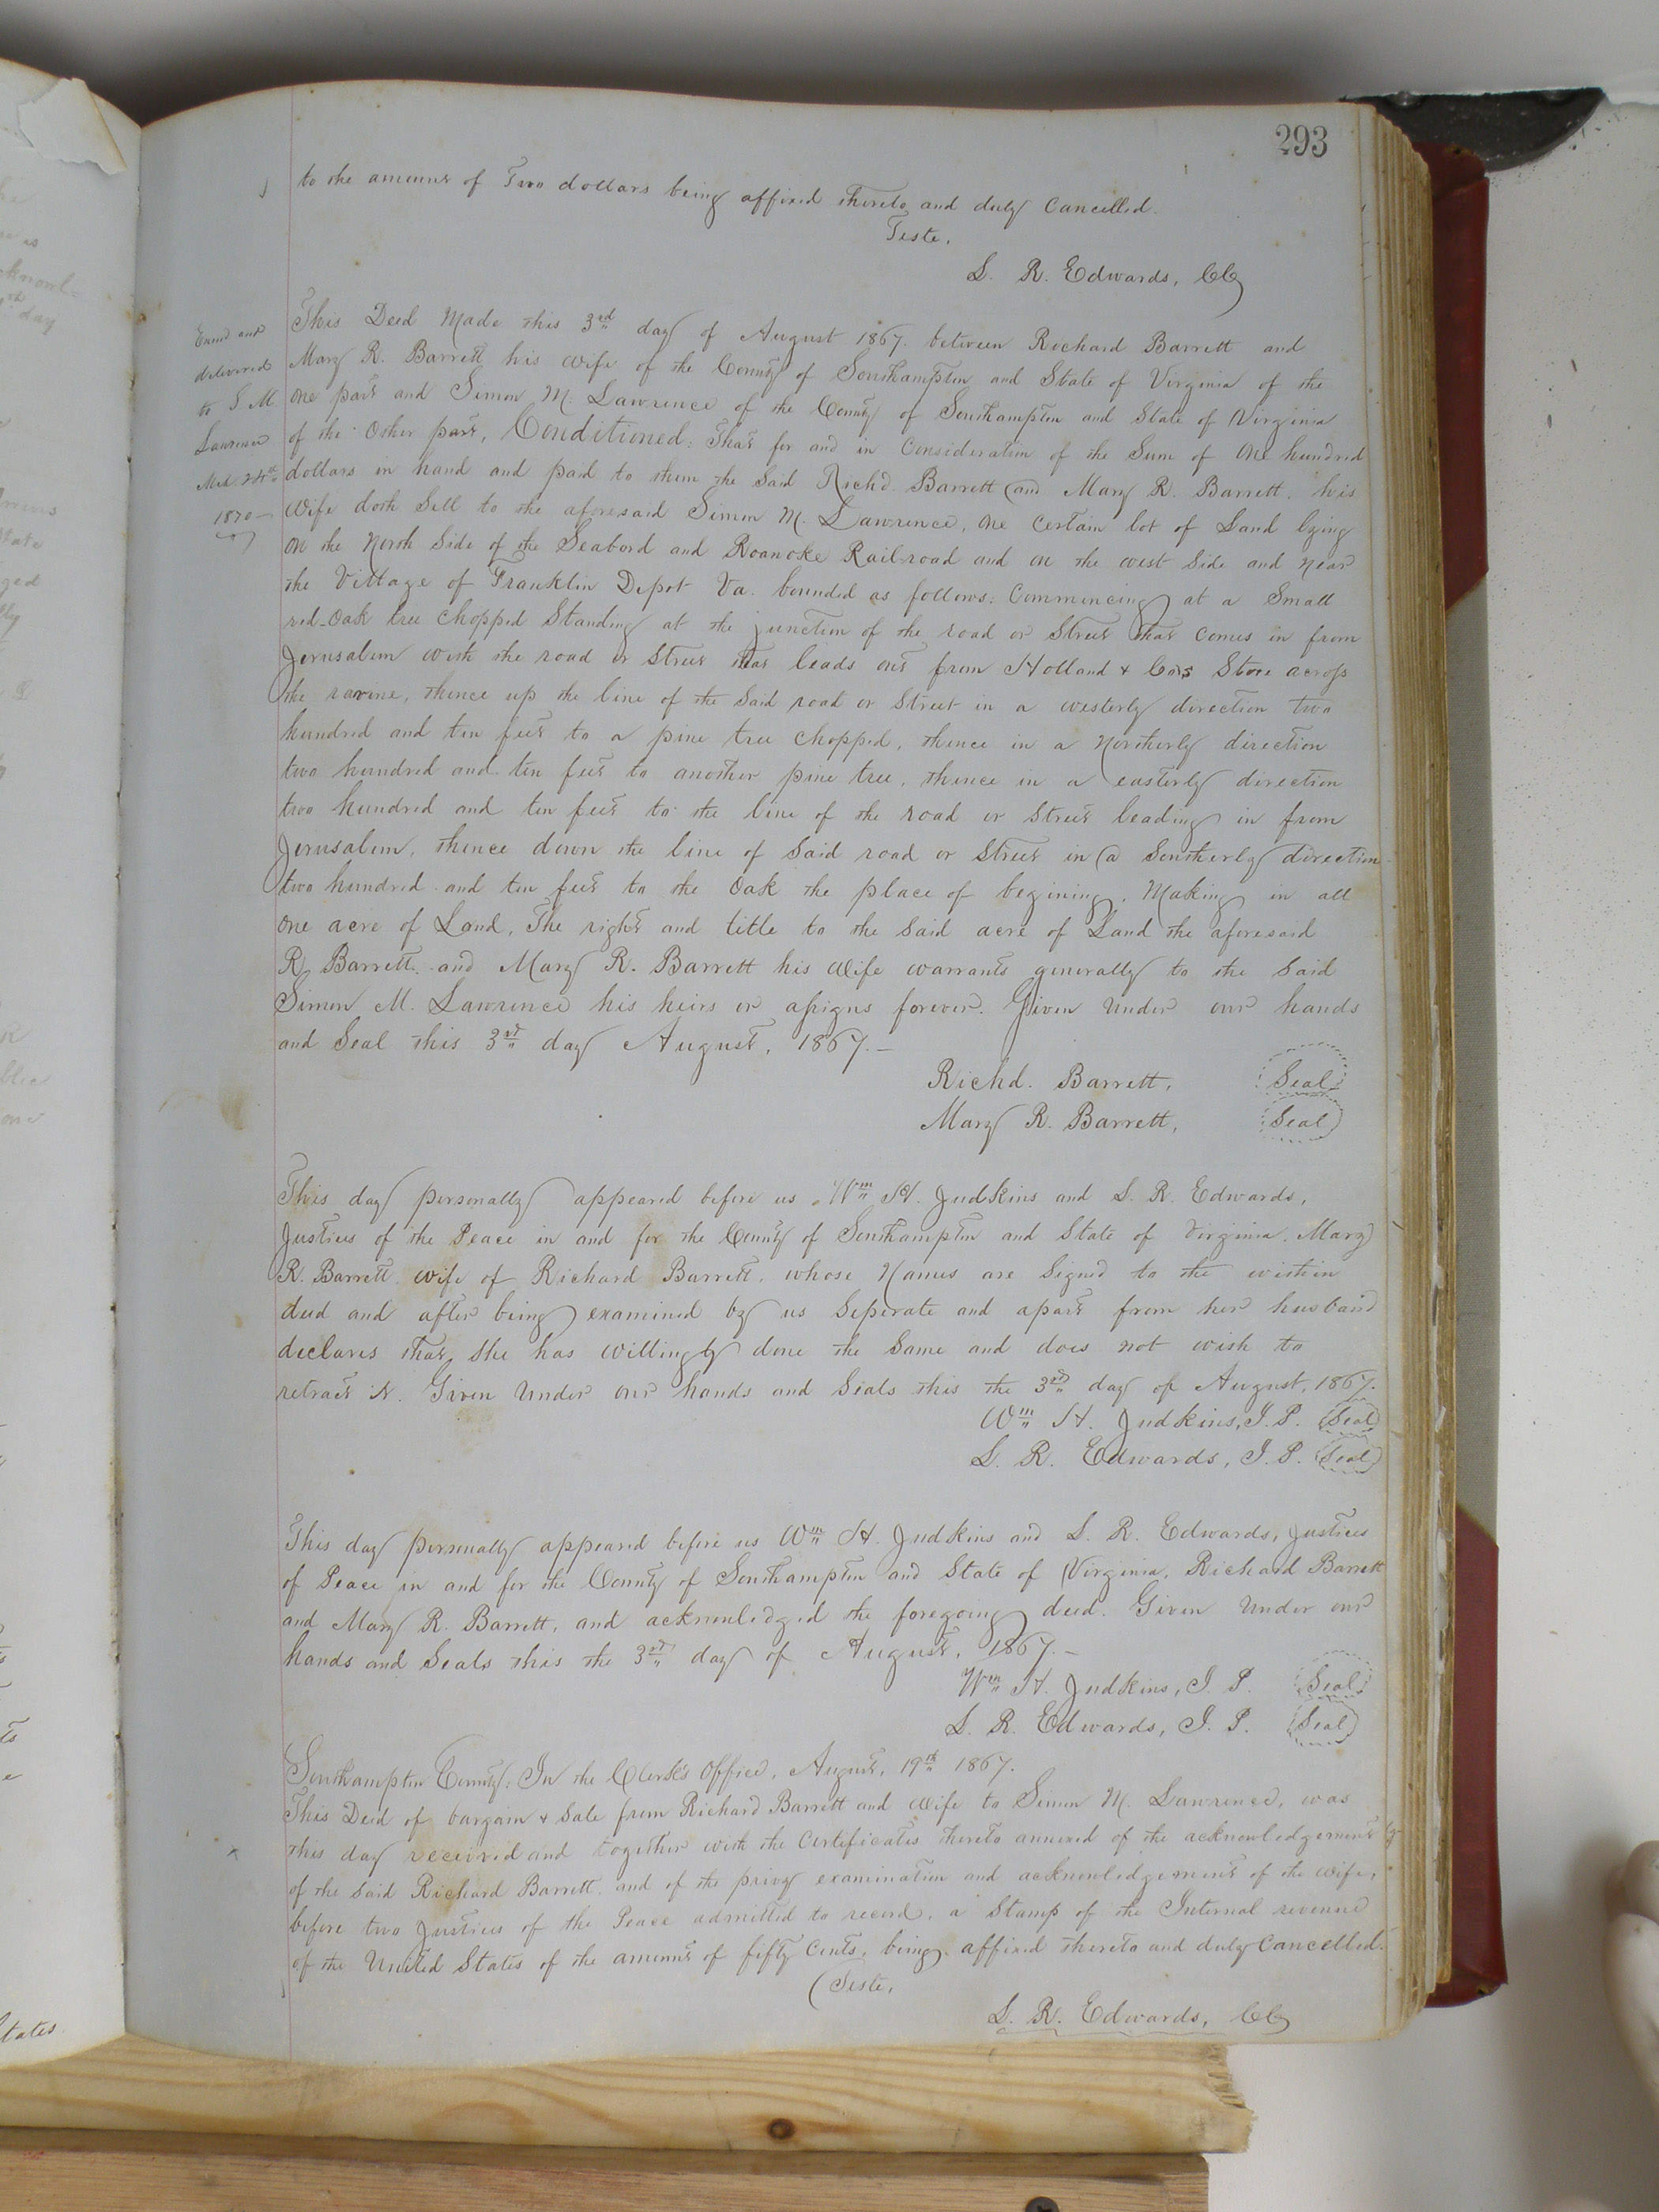 293
to the amount of Two dollars being affixed thereto, and duly Cancelled.
Teste,
L. R. Edwards, CC
Examd and
delivered
to S M
Lawrence
Mch 24th
1870 —
This Deed Made this 3rd day of August 1867. between Richard Barrett and
Mary R. Barrett his wife of the County of Southampton and State of Virginia of the
one part and Simon M. Lawrence of the County of Southampton and State of Virginia
of the Other part, Conditioned: That for and in Consideration of the Sum of One hundred
dollars in hand and paid to them the Said Richd. Barrett and Mary R. Barrett. his
Wife doth Sell to the aforesaid Simon M. Lawrence, one Certain lot of Land lying
on the North Side of the Seabord and Roanoke Railroad and on the west Side and near
the Village of Franklin Depot Va. bounded as follows: Commencing at a Small
red-Oak tree Chopped Standing at the junction of the road or Street that comes in from
Jerusalem with the road or Street that leads out from Holland & Co's Store across
the ravine, thence up the line of the Said road or Street in a westerly direction two
hundred and ten feet to a pine tree Chopped, thence in a Northerly direction
two hundred and ten feet to another pine tree, thence in a easterly direction
two hundred and ten feet to the line of the road or Street leading in from
Jerusalem, thence down the line of Said road or Street in a Southerly direction
two hundred and ten feet to the Oak the place of begining, Making in all
One acre of Land, The right and title to the Said acre of Land the aforesaid
R, Barrett and Mary R. Barrett his Wife warrants generally to the Said
Simon M. Lawrence his heirs or assigns forever. Given Under our hands
and Seal this 3rd day August, 1867. —
Richd. Barrett, Seal
Mary R. Barrett, Seal
This day personally appeared before us Wm H. Judkins and L. R. Edwards,
Justices of the Peace in and for the County of Southampton and State of Virginia. Mary
R. Barrett wife of Richard Barrett, whose Names are Signed to the within
deed and after being examined by us Seperate and apart from her husband
declares that she has willingly done the Same and does not wish to
retract it. Given Under our hands and Seals this the 3rd day of August, 1867.
Wm H. Judkins, J. P. Seal
L. R. Edwards, J. P. Seal
This day personally appeared before us Wm H. Judkins and L. R. Edwards, Justices
of Peace in and for the County of Southampton and State of Virginia, Richard Barrett
and Mary R. Barrett, and acknowledged the foregoing deed. Given Under our
hands and Seals this the 3rd day of August, 1867. —
Wm H. Judkins, J. P. Seal
L. R. Edwards, J. P. Seal
Southampton County: In the Clerk's Office, August, 19th 1867.
This Deed of bargain & Sale from Richard Barrett and Wife to Simon M. Lawrence, was
this day received and together with the Certificates thereto annexed of the acknowledgement
of the Said Richard Barrett and of the privy examination and acknowledgement of the wife,
before two Justices of the Peace admitted to record, a Stamp of the Internal revenue
of the United States of the amount of fifty Cents, being affixed thereto and duly Cancelled.
Teste,
L. R. Edwards, CC
States.